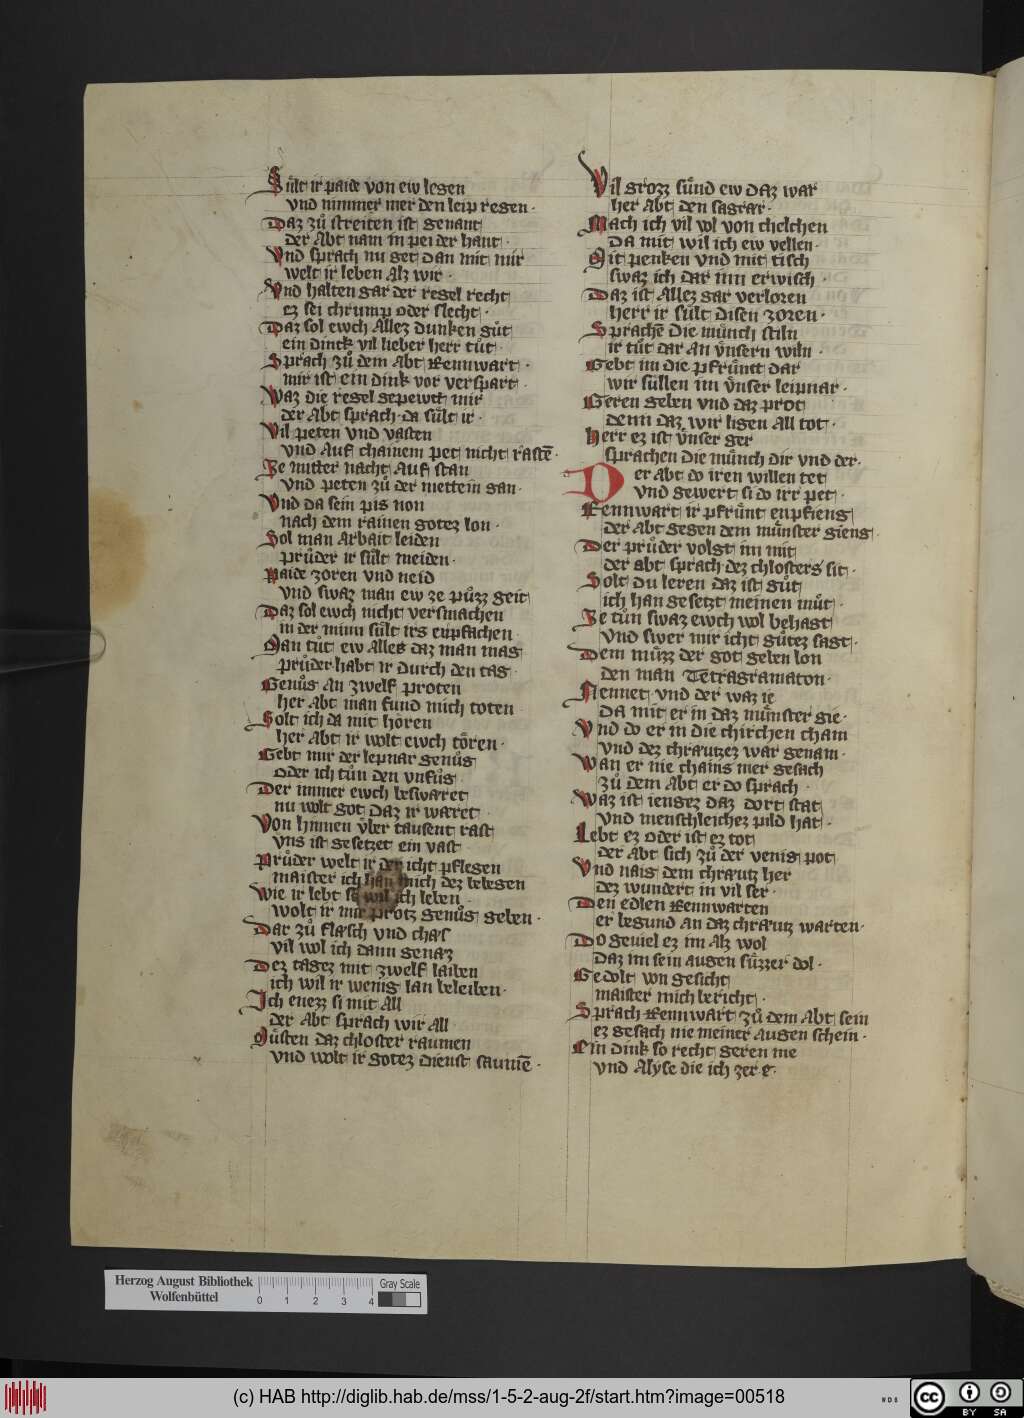 Sult ir paide von ew legen
vnd nimmer mer den leip regen ·
Daz zů streiten ist genant
der Abt nam in pei der hant ·
Vnd sprach nu get dan mit mir
welt ir leben Alz wir ·
Vnd halten gar der regel recht
ez sei chrump oder slecht ·
Daz sol ewch Allez dunken gůt
ein dinck vil lieber herr tůt ·
Sprach zů dem Abt Rennwart ·
mir ist ein dink vor verspart ·
Waz die regel gepewtt mir
der Abt sprach da sült ir ·
Vil peten vnd vasten
vnd Auf chainem pet nicht rastē ·
Ze mitter nacht Auf stan
vnd peten zů der mettein gan ·
Vnd da sein pis non
nach dem rainen gotez lon ·
Sol man Arbait leiden
průder ir sült meiden ·
Paide zoren vnd neid
vnd swaz man ew ze půzz geit
Daz sol ewch nicht versmachen
in der minn sült irs enpfachen ·
Man tůt ew Alles daz man mag
průder habt ir durch den tag ·
Genůg An zwelf proten
her Abt man fund mich toten
Solt ich da mit hören
her Abt ir wolt ewch tören ·
Gebt mir der lepnar genůg
oder ich tůn den vnfůg ·
Der immer ewch beswæret
nu wolt got daz ir wæret ·
Von hinnen vber tausent rast
vns ist gesetzet ein vast ·
Průder welt ir der icht pflegen
maister ich han mich dez belegen
Wie ir lebt so wil ich leben ·
wolt ir mir protz genůg geben ·
Dar zů flæsch vnd chæs
vil wol ich dann genaz
Dez tagez mit zwelf laiben
ich wil ir wenig lan beleiben ·
Ich enezz si mit All
der Abt sprach wir All
Müsten daz chloster raumen
vnd wolt ir gotez dienst saumē ·
Vil grozz sünd ew daz war
her Abt den sagrær ·
Mach ich vil vol von chelchen
Da mit wil ich ew vellen ·
Mit penken vnd mit tisch
swaz ich dar inn erwisch ·
Daz ist Allez gar verloren
herr ir sült disen zoren ·
Sprachē die münch stiln
ir tůt dar An vnsern wiln ·
Gebt im die pfrůnt dar
wir süllen im vnser leipnar ·
Geren geben vnd daz prot
denn daz wir ligen All tot ·
Herr ez ist vnser ger
sprachen die münch dir vnd der ·
Der abt do iren willen tet
vnd gewert si do irr pet ·
Rennwart ir pfrůnt enpfieng
der Abt gegen dem münster gieng ·
Der průder volgt im mit
der abt sprach dez chlosters sit ·
Solt du leren daz ist gůt
ich han gesetzt meinen můt ·
Ze tůn swaz ewch wol behagt
vnd swer mir icht gůtez sagt ·
Dem můzz der got geben lon
den man Tetragramaton ·
Nennet vnd der waz ie
Da mit er in daz münster gie ·
Vnd do er in die chirchen cham
vnd dez chrautzez war genam ·
Wan er nie chains mer gesach
zů dem Abt er do sprach ·
Waz ist iengez daz dort stat
vnd menschleichez pild hat ·
Lebt ez oder ist ez tot
der Abt sich zů der venig pot
Vnd naig dem chrautz her
dez wundert in vil ser ·
Den edlen Rennwarten
er begund An daz chrautz warten ·
Do geuiel ez im Alz wol
Daz im sein augen süzzer dol ·
Gedolt von gesicht
maister mich bericht ·
Sprach Rennwart zů dem Abt sein
ez gesach nie meiner Augen schein ·
Ein dink so recht geren me
vnd Alyse die ich zer e ·
Herzog August Bibliothek
Wolfenbüttel
0 1 2 3 4
Gray Scale
(c) HAB http://diglib.hab.de/mss/1-5-2-aug-2f/start.htm?image=00518
WDB
cc
BY SA